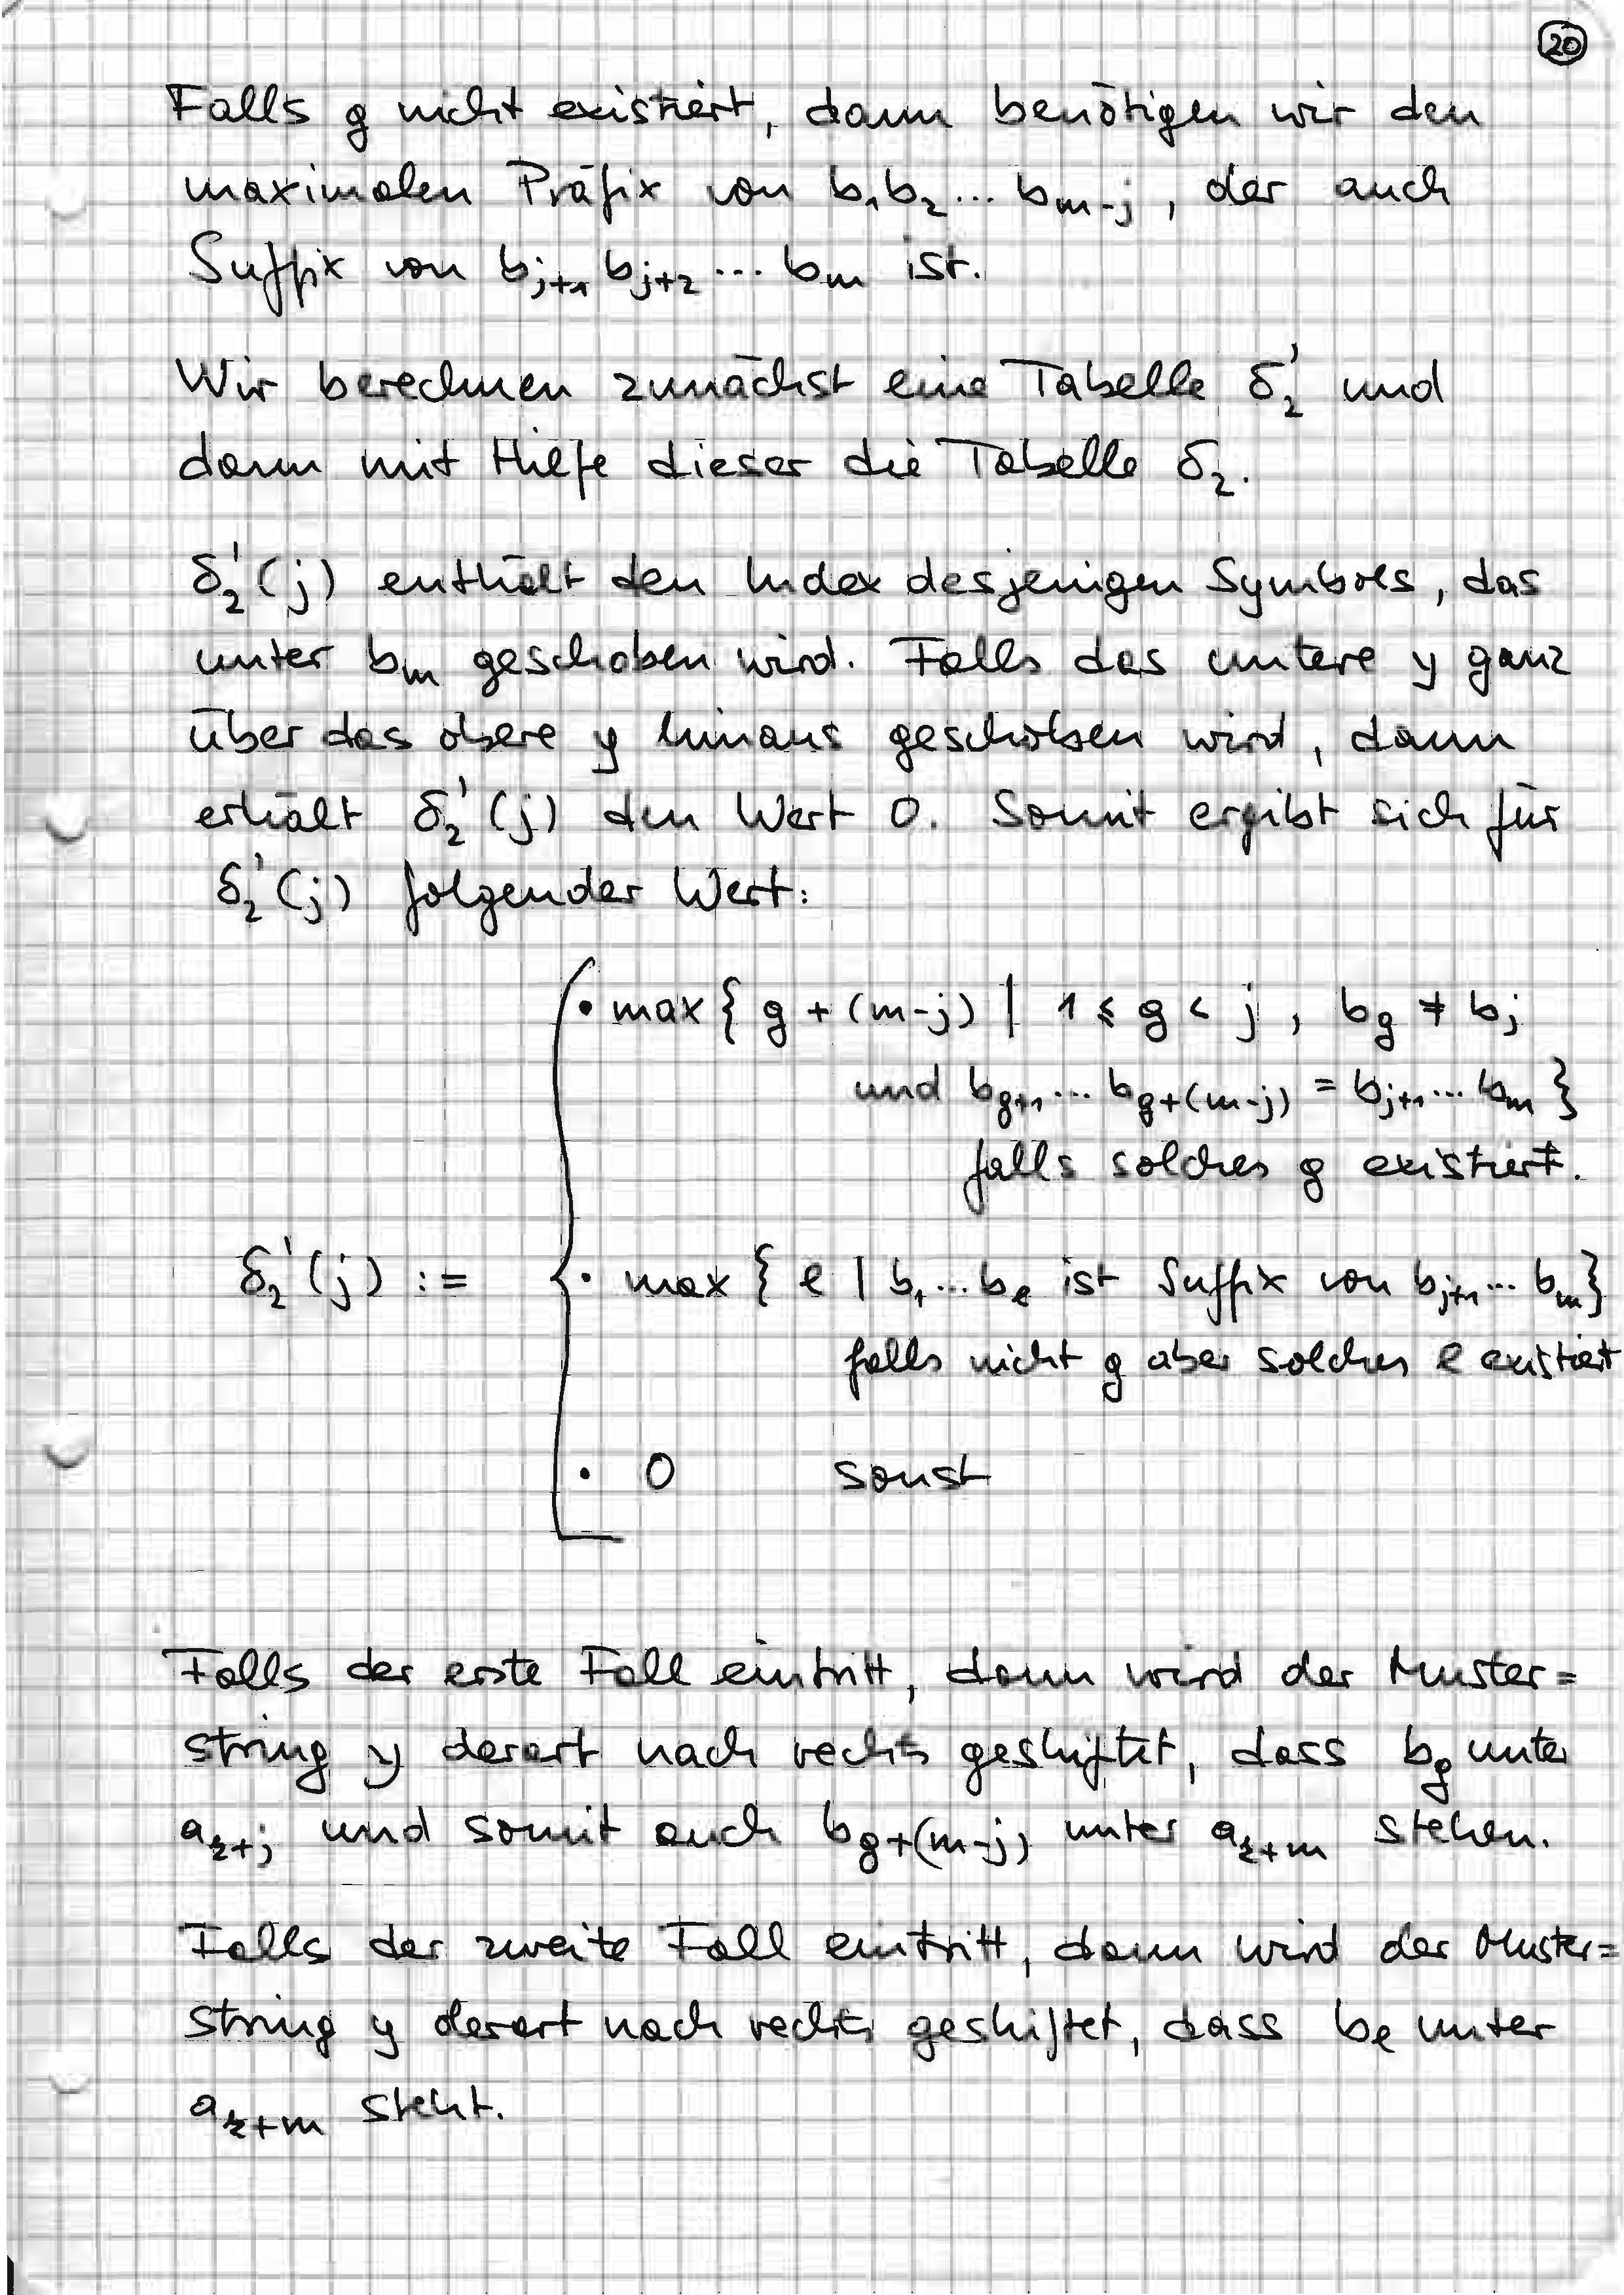 20
Falls g nicht existiert, dann benötigen wir den
maximalen Präfix von b₁b₂... b_{m-j}, der auch
Suffix von b_{j+1} b_{j+2} ... b_m ist.
Wir berechnen zunächst eine Tabelle δ₂' und
dann mit Hilfe dieser die Tabelle δ₂.
δ₂'(j) enthält den Index desjenigen Symbols, das
unter b_m geschoben wird. Falls das untere y ganz
über das obere y hinaus geschoben wird, dann
erhält δ₂'(j) den Wert 0. Somit ergibt sich für
δ₂'(j) folgender Wert:
• max { g + (m-j) | 1 ≤ g < j, b_g ≠ b_j
und b_{g+1}... b_{g+(m-j)} = b_{j+1}... b_m }
falls solches g existiert.
δ₂'(j) := • max { ℓ | b₁...b_ℓ ist Suffix von b_{j+1}... b_m}
falls nicht g aber solches ℓ existiert
• 0 sonst
Falls der erste Fall eintritt, dann wird der Muster=
string y derart nach rechts geshiftet, dass b_g unter
a_{k+j} und somit auch b_{g+(m-j)} unter a_{k+m} stehen.
Falls der zweite Fall eintritt, dann wird der Muster=
string y derart nach rechts geshiftet, dass b_ℓ unter
a_{k+m} steht.